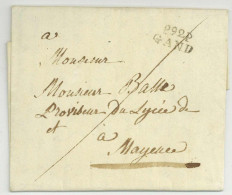 P.92.P
GAND
a
Monsieur
Monsieur Balle
Proviseur Du Lycée de
et à
Mayence